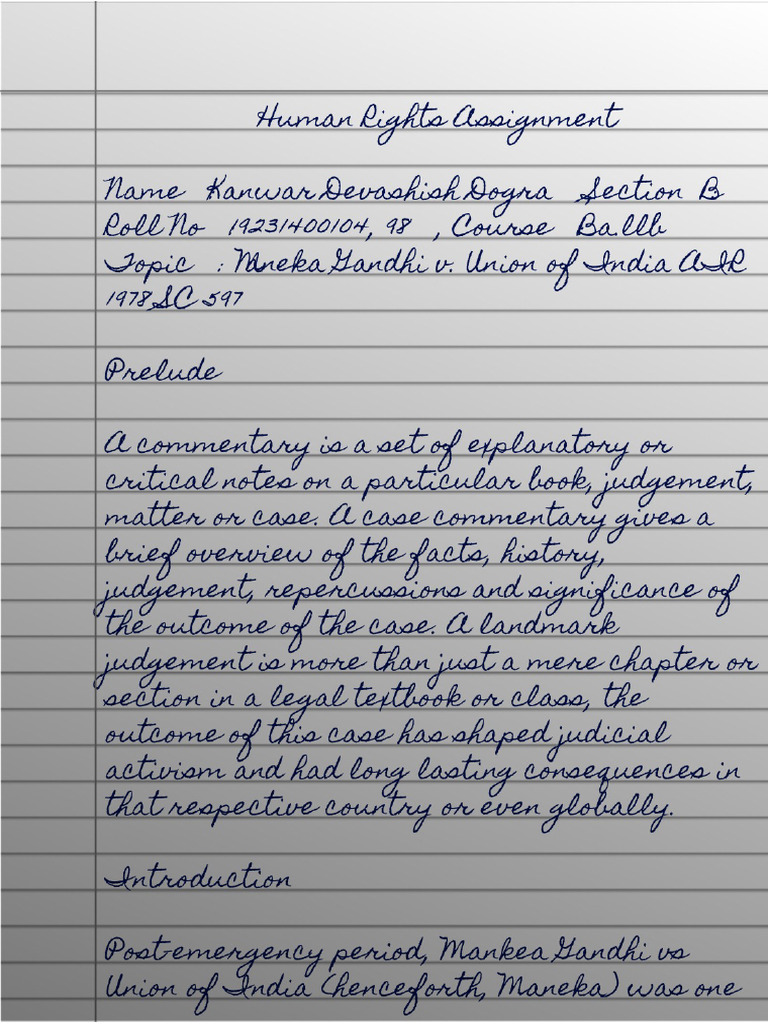 Human Rights Assignment
Name Kanwar Devashish Dogra Section B
Roll No 19231400104, 98 , Course Ba.llb
Topic : Mneka Gandhi v. Union of India AIR
1978 SC 597
Prelude
A commentary is a set of explanatory or
critical notes on a particular book, judgement,
matter or case. A case commentary gives a
brief overview of the facts, history,
judgement, repercussions and significance of
the outcome of the case. A landmark
judgement is more than just a mere chapter or
section in a legal textbook or class, the
outcome of this case has shaped judicial
activism and had long lasting consequences in
that respective country or even globally.
Introduction
Post-emergency period, Mankea Gandhi vs
Union of India (henceforth, Maneka) was one